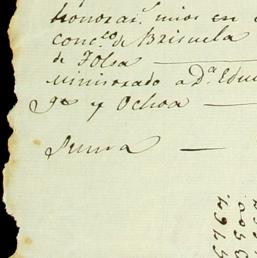 honorar.s mios en
conc.to de Brisuela
de Tolsa
ministrado a D.a Edu
g.s y Ochoa
Suma